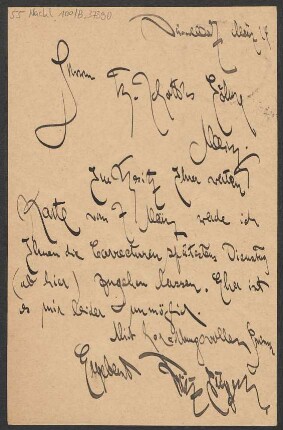 Darmstadt März 19
Herrn
B. Schott's Söhne
Mainz.
Im Besitz Ihrer werten
Karte vom 7 März werde ich
Ihnen die Correcturen spätestens Dienstag
(ab hier) zugehen lassen. Eher ist
es mir leider unmöglich.
Mit hochachtungsvollem Gruss
Ergebenst Fritz